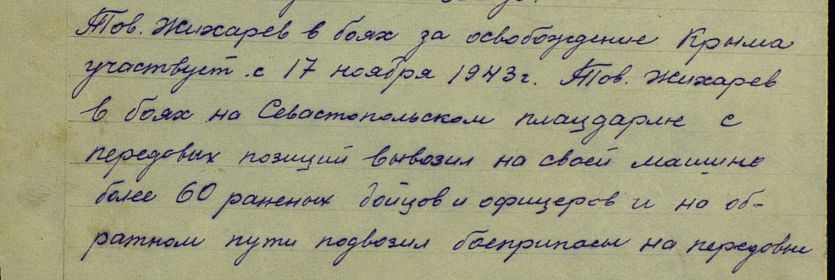 Тов. Жихарев в боях за освобождение Крыма
участвует с 17 ноября 1943г. Тов. Жихарев
в боях на Севастопольском плацдарме с
передовых позиций вывозил на своей машине
более 60 раненых бойцов и офицеров и на об-
ратном пути подвозил боеприпасы на передовые